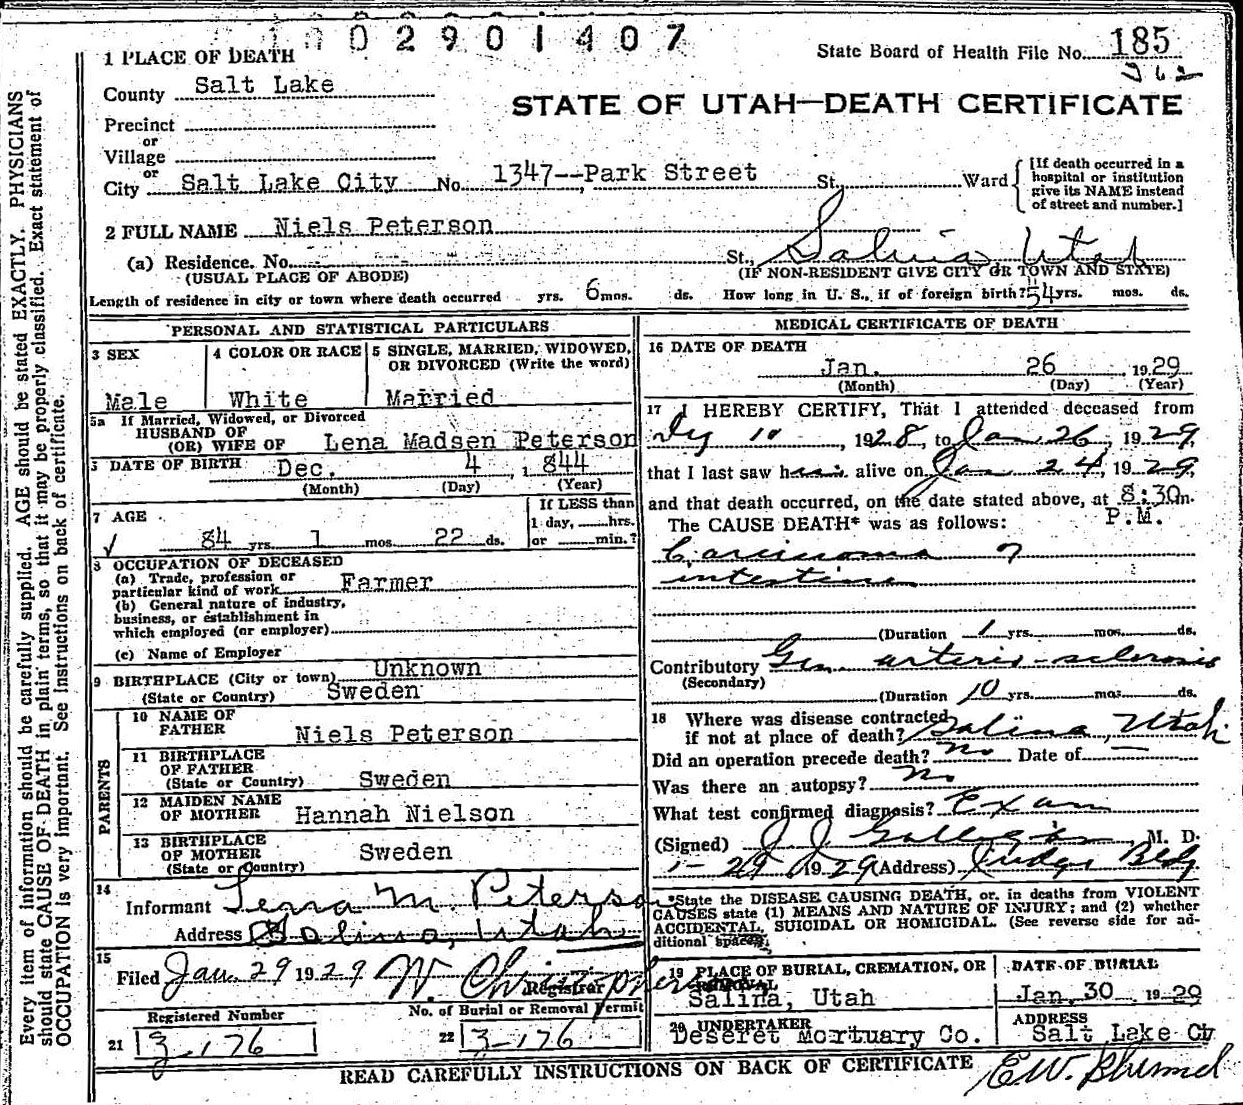 0 0 2 9 0 1 4 0 7
State Board of Health File No. 185
1 PLACE OF DEATH
County Salt Lake
STATE OF UTAH—DEATH CERTIFICATE
Precinct
or
Village
or
City Salt Lake City No. 1347--Park Street St. Ward
[If death occurred in a hospital or institution give its NAME instead of street and number.]
2 FULL NAME Niels Peterson
(a) Residence. No. St., Salina, Utah
(USUAL PLACE OF ABODE) (IF NON-RESIDENT GIVE CITY OR TOWN AND STATE)
Length of residence in city or town where death occurred yrs. 6 mos. ds. How long in U. S., if of foreign birth? 54 yrs. mos. ds.
PERSONAL AND STATISTICAL PARTICULARS
3 SEX
Male
4 COLOR OR RACE
White
5 SINGLE, MARRIED, WIDOWED, OR DIVORCED (Write the word)
Married
5a If Married, Widowed, or Divorced
HUSBAND OF
(OR) WIFE OF Lena Madsen Peterson
DATE OF BIRTH Dec. 4 , 1844
(Month) (Day) (Year)
7 AGE
84 yrs. 1 mos. 22 ds.
If LESS than
1 day, hrs.
or min.?
8 OCCUPATION OF DECEASED
(a) Trade, profession or
particular kind of work Farmer
(b) General nature of industry,
business, or establishment in
which employed (or employer)
(c) Name of Employer
9 BIRTHPLACE (City or town) Unknown
(State or Country) Sweden
PARENTS
10 NAME OF
FATHER Niels Peterson
11 BIRTHPLACE
OF FATHER
(State or Country) Sweden
12 MAIDEN NAME
OF MOTHER Hannah Nielson
13 BIRTHPLACE
OF MOTHER
(State or Country) Sweden
14
Informant Lena M. Peterson
Address Salina, Utah
15
Filed Jan. 29 1929
Registrar
Registered Number
21 3-176
No. of Burial or Removal Permit
22 3-176
MEDICAL CERTIFICATE OF DEATH
16 DATE OF DEATH
Jan. 26 , 1929
(Month) (Day) (Year)
17 I HEREBY CERTIFY, That I attended deceased from
10 , 1928, to Jan 26, 1929,
that I last saw him alive on Jan 24, 1929,
and that death occurred, on the date stated above, at 8:30 m.
P.M.
The CAUSE DEATH* was as follows:
Carcinoma of
intestine
(Duration 1 yrs. mos. ds.
Contributory Gen. arterio-sclerosis
(Secondary)
(Duration 10 yrs. mos. ds.
18 Where was disease contracted
if not at place of death? Salina, Utah
Did an operation precede death? No Date of —
Was there an autopsy? No
What test confirmed diagnosis? Exam
(Signed) M. D.
1-29 1929 (Address) Judge Bldg
*State the DISEASE CAUSING DEATH, or, in deaths from VIOLENT
CAUSES state (1) MEANS AND NATURE OF INJURY; and (2) whether
ACCIDENTAL, SUICIDAL OR HOMICIDAL. (See reverse side for ad-
ditional space.
19 PLACE OF BURIAL, CREMATION, OR
REMOVAL
Salina, Utah
DATE OF BURIAL
Jan. 30 , 1929
20 UNDERTAKER
Deseret Mortuary Co.
ADDRESS
Salt Lake Cy
READ CAREFULLY INSTRUCTIONS ON BACK OF CERTIFICATE
Every item of information should be carefully supplied. AGE should be stated EXACTLY. PHYSICIANS
should state CAUSE OF DEATH in plain terms, so that it may be properly classified. Exact statement of
OCCUPATION is very important. See Instructions on back of certificate.